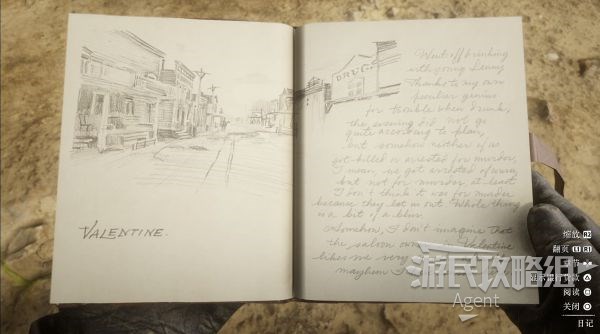 VALENTINE.
DRUGS
Went off drinking
with young Lenny
Thanks to my own
peculiar genius
for trouble when drunk,
the evening did not go
quite according to plan,
but somehow neither of us
got killed or arrested for murder,
I mean, we got arrested of course
but not for murder at least
I don't think it was for murder
because they let us out. Whole thing
is a bit of a blur.
Somehow, I don't imagine that
the saloon in Valentine
likes me very
mayhem I
游民攻略组
Agent
缩放 R2
翻页 L1 R1
阅读
关闭
日记